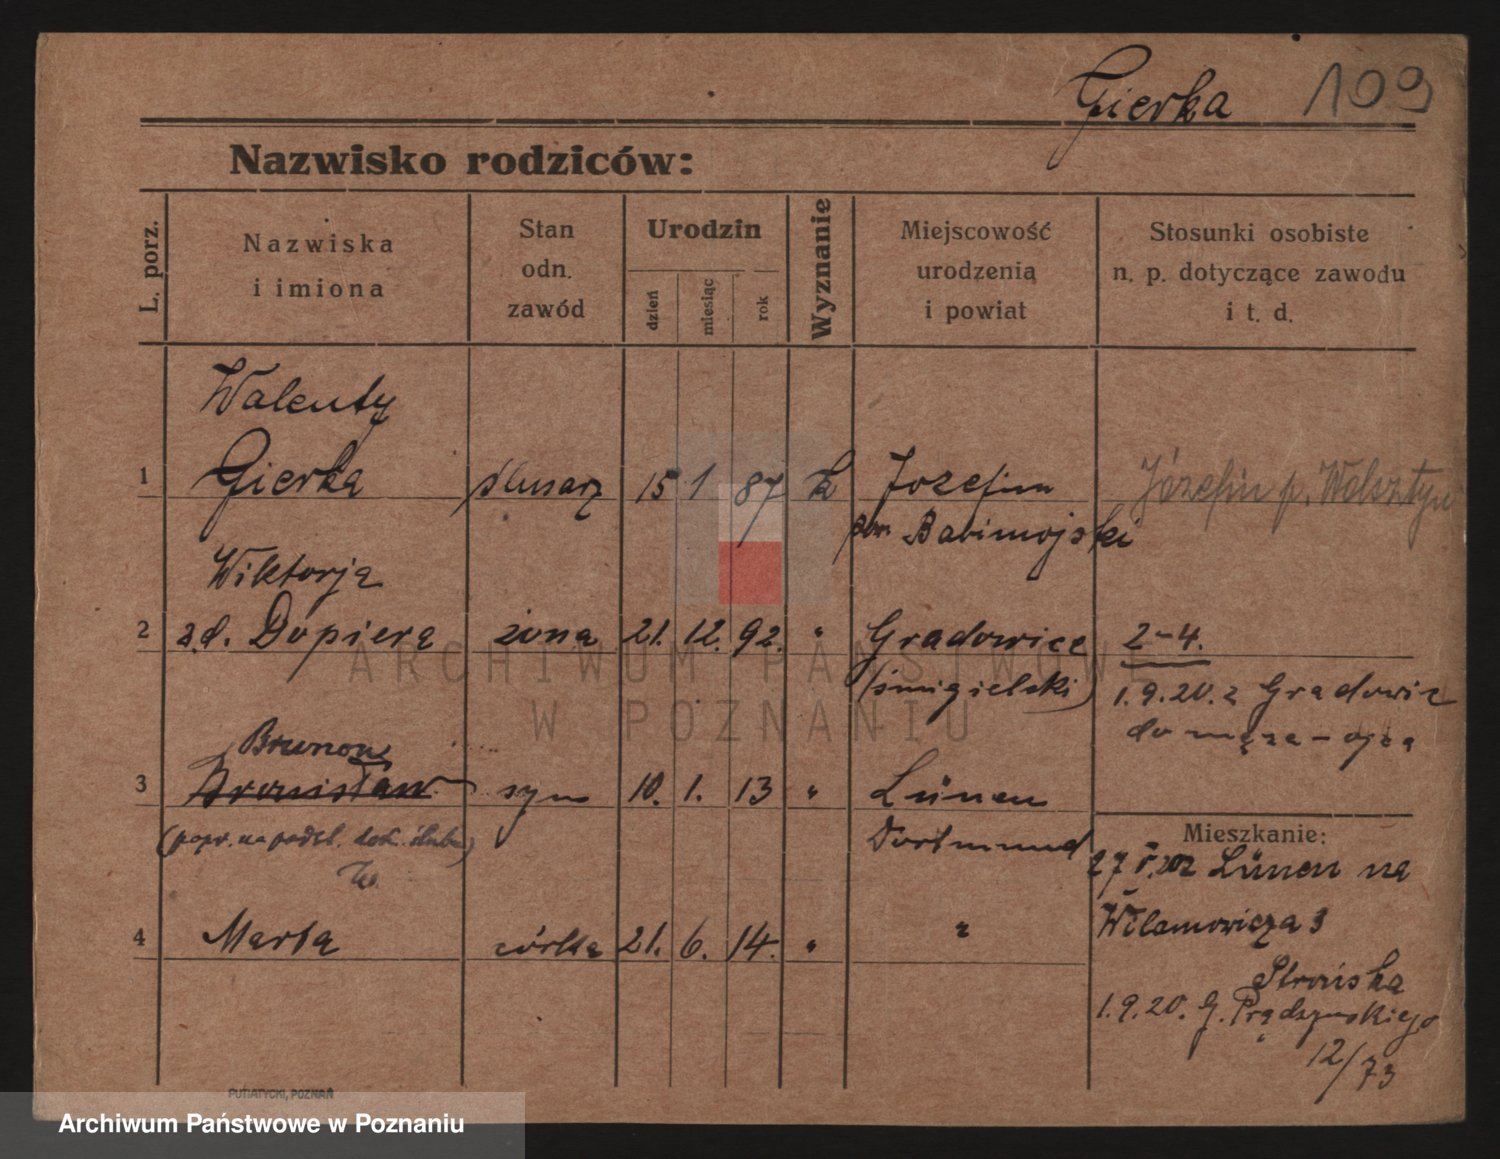 Gierka 109
Nazwisko rodziców:
L. porz.
Nazwiska
i imiona
Stan
odn.
zawód
Urodzin
dzień
miesiąc
rok
Wyznanie
Miejscowość
urodzenia
i powiat
Stosunki osobiste
n. p. dotyczące zawodu
i t. d.
Walenty
1 Gierka ślusarz 15 1 87 k Jozefin Józefin p. Wolsztyn
pow. Babimojski
Wiktorja
2 z.d. Dopiera żona 21. 12. 92. " Gradowice 2-4.
(śmigielski) 1.9.20. z Gradowic
do męża - ojca
Brunon
3 Bronisław syn 10. 1. 13 " Lünen
(popr. na podst. ślubu)
Dortmund
Mieszkanie:
27 Lünen na
4 Marta córka 21. 6. 14. " "
3
Strońska
1.9.20. G. Prądzyńskiego
12/73
PUTIATYCKI, POZNAŃ
ARCHIWUM PAŃSTWOWE
W POZNANIU
Archiwum Państwowe w Poznaniu